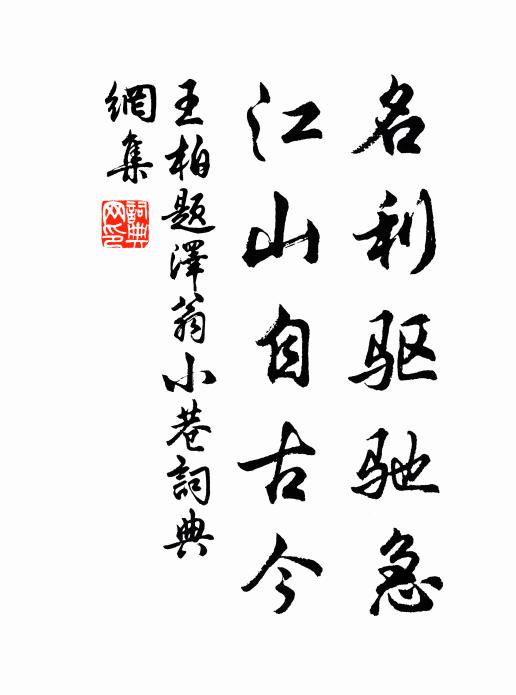 名利驱驰急
江山自古今
王柏题澤翁小巷詞典
網集
詞典網印